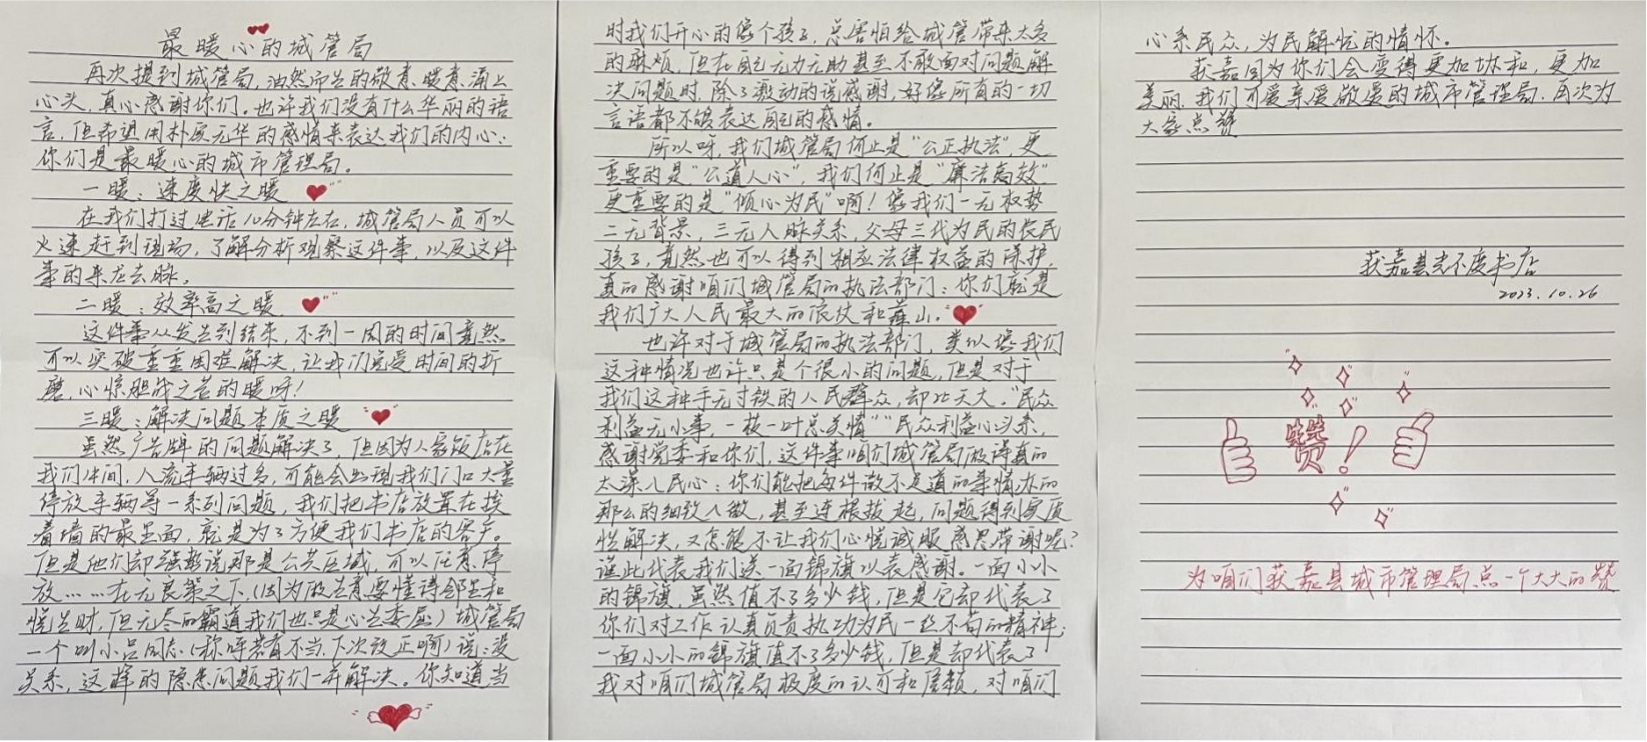 最暖心的城管局
再次提到城管局,油然而生的敬意、暖意涌上
心头,真心感谢你们。也许我们没有什么华丽的语
言,但希望用朴实无华的感情来表达我们的内心:
你们是最暖心的城市管理局。
一暖:速度快之暖
在我们打过电话10分钟左右,城管局人员可以
火速赶到现场,了解分析观察这件事,以及这件
事的来龙去脉。
二暖:效率高之暖
这件事从发生到结束,不到一周的时间竟然
可以突破重重困难解决,让我们免受时间的折
磨,心惊胆战之苦的暖呀!
三暖:解决问题本质之暖
虽然广告牌的问题解决了,但因为人家饭店在
我们中间,人流车辆过多,可能会出现我们门口大量
停放车辆等一系列问题,我们把书店放置在挨
着墙的最里面,就是为了方便我们书店的客户。
但是他们却强势说那是公共区域,可以任意停
放……在无良策之下,(因为做生意要懂得舍得和
悦生财,但无尽的霸道我们也只是心生委屈)城管局
一个叫小吕同志(称呼若有不当,下次改正啊)说:没
关系,这样的隐患问题我们一并解决。你知道当
时我们开心的像个孩子,总害怕给城管带来太多
的麻烦,但在自己无力无助甚至不敢面对问题解
决问题时,除了激动的说感谢,好像所有的一切
言语都不够表达自己的感情。
所以呀,我们城管局何止是“公正执法”,更
重要的是“公道人心”,我们何止是“廉洁高效”
更重要的是“倾心为民”啊!像我们一无权势
二无背景,三无人脉关系,父母三代为民的农民
孩子,竟然也可以得到相应法律权益的保护,
真的感谢咱们城管局的执法部门:你们就是
我们广大人民最大的依仗和靠山。
也许对于城管局的执法部门,类似像我们
这种情况也许只是个很小的问题,但是对于
我们这种手无寸铁的人民群众,却比天大。“民众
利益无小事,一枝一叶总关情”“民众利益心头系,
感谢党委和你们,这件事咱们城管局做得真的
太深入民心:你们能把每件微不足道的事情办的
那么的细致入微,甚至连根拔起,问题得到实质
性解决,又怎能不让我们心悦诚服感恩带谢呢?
谨此代表我们送一面锦旗以表感谢。一面小小
的锦旗,虽然值不了多少钱,但是它却代表了
你们对工作认真负责执功为民一丝不苟的精神;
一面小小的锦旗值不了多少钱,但是却代表了
我对咱们城管局极度的认可和信赖,对咱们
心系民众,为民解忧的情怀。
获嘉因为你们会变得更加协和,更加
美丽,我们可爱亲爱敬爱的城市管理局,再次为
大家点赞
获嘉县光不度书店
2023.10.26
赞!
为咱们获嘉县城市管理局点一个大大的赞